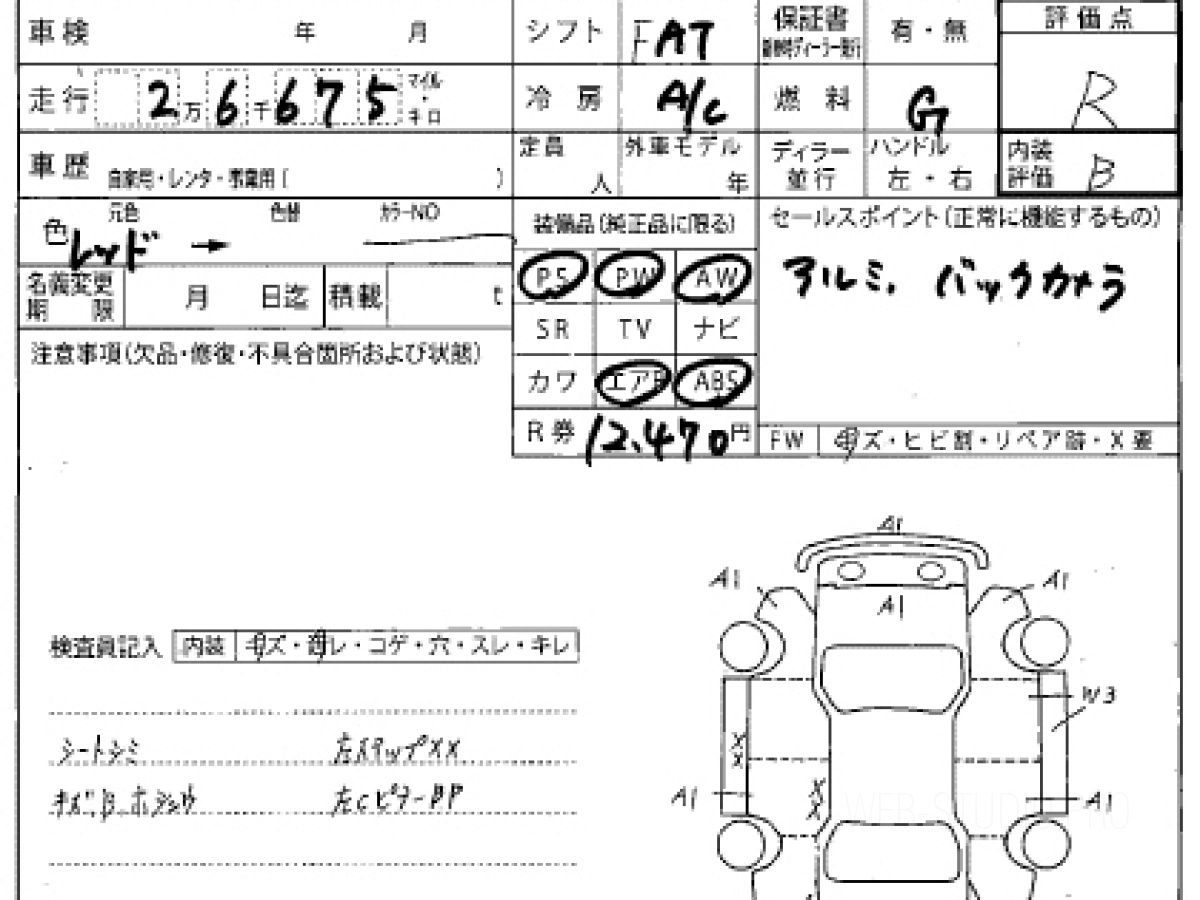 車検 年 月 シフト FAT 保証書 新車時ディーラー発行 有・無 評価点
走行 2万6千675 マイル・キロ 冷房 A/C 燃料 G R
車歴 自家用・レンタ・事業用( ) 定員 人 外車モデル 年 ディラー 並行 ハンドル 左・右 内装評価 B
色 元色 レッド → 色替 カラーNO
装備品(純正品に限る) セールスポイント(正常に機能するもの)
名義変更期限 月 日迄 積載 t PS PW AW アルミ. バックカメラ
SR TV ナビ
注意事項(欠品・修復・不具合箇所および状態)
カワ エアB ABS
R券 12,470円 FW キズ・ヒビ割・リペア跡・X要
A1
A1 A1
A1
検査員記入 内装 キズ・汚レ・コゲ・穴・スレ・キレ
W3
XX
シートシミ 左ステップXX
XX
A1 A1
キズ, B ホシュウ 左Cピラー
WEB-STUDIO.PRO